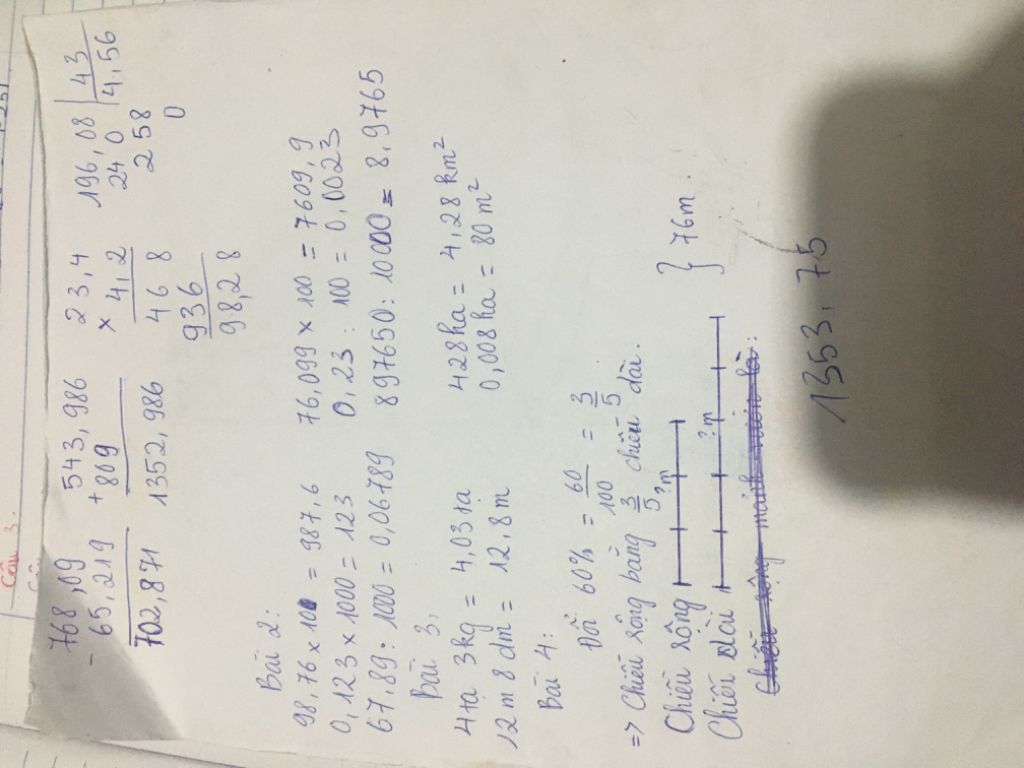 Câu 3:
768,09
- 65,219
702,871
543,986
+ 809
1352,986
23,4
× 4,2
468
936
98,28
196,08 | 43
24 0 | 4,56
2 58
0
Bài 2:
98,76 × 10 = 987,6
76,099 × 100 = 7609,9
0,123 × 1000 = 123
0,23 : 100 = 0,0023
67,89 : 1000 = 0,06789
897650 : 10000 = 8,9765
Bài 3,
4 tạ 3kg = 4,03 tạ
428 ha = 4,28 km²
12 m 8 dm = 12,8 m
0,008 ha = 80 m²
Bài 4:
Đổi 60% = 60/100 = 3/5
=> Chiều rộng bằng 3/5 chiều dài.
Chiều rộng
?m
Chiều dài
?m
} 76m.
1353,75